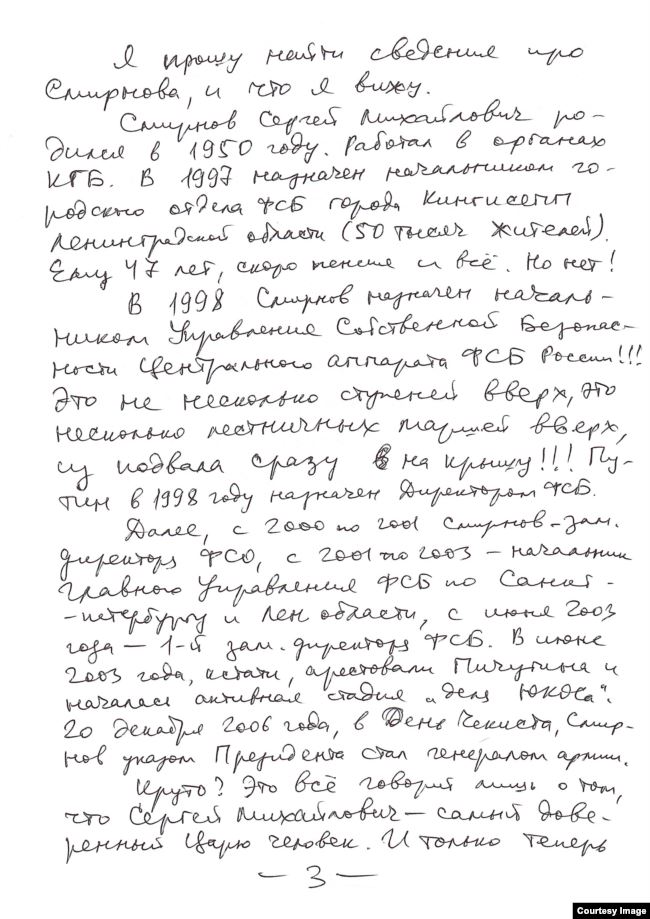 Я прошу найти сведения про
Смирнова, и что я вижу.
Смирнов Сергей Михайлович ро-
дился в 1950 году. Работал в органах
КГБ. В 1997 назначен начальником го-
родского отдела ФСБ города Кингисепп
Ленинградской области (50 тысяч жителей).
Ему 47 лет, скоро пенсия и всё. Но нет!
В 1998 Смирнов назначен началь-
ником Управления Собственной Безопас-
ности Центрального аппарата ФСБ России!!!
Это не несколько ступеней вверх, это
несколько лестничных маршей вверх,
из подвала сразу на крышу!!! Пу-
тин в 1998 году назначен Директором ФСБ.
Далее, с 2000 по 2001 Смирнов-зам.
директора ФСО, с 2001 по 2003 – начальник
Главного Управления ФСБ по Санкт-
-петербургу и Лен области, с июня 2003
года – 1-й зам. директора ФСБ. В июне
2003 года, кстати, арестовали Пичугина и
началась активная стадия „дела ЮКОСа".
20 декабря 2006 года, в День Чекиста, Смир-
нов указом Президента стал генералом армии.
Круто? Это всё говорит лишь о том,
что Сергей Михайлович – самый дове-
ренный Царю человек. И только теперь
– 3 –
Courtesy Image